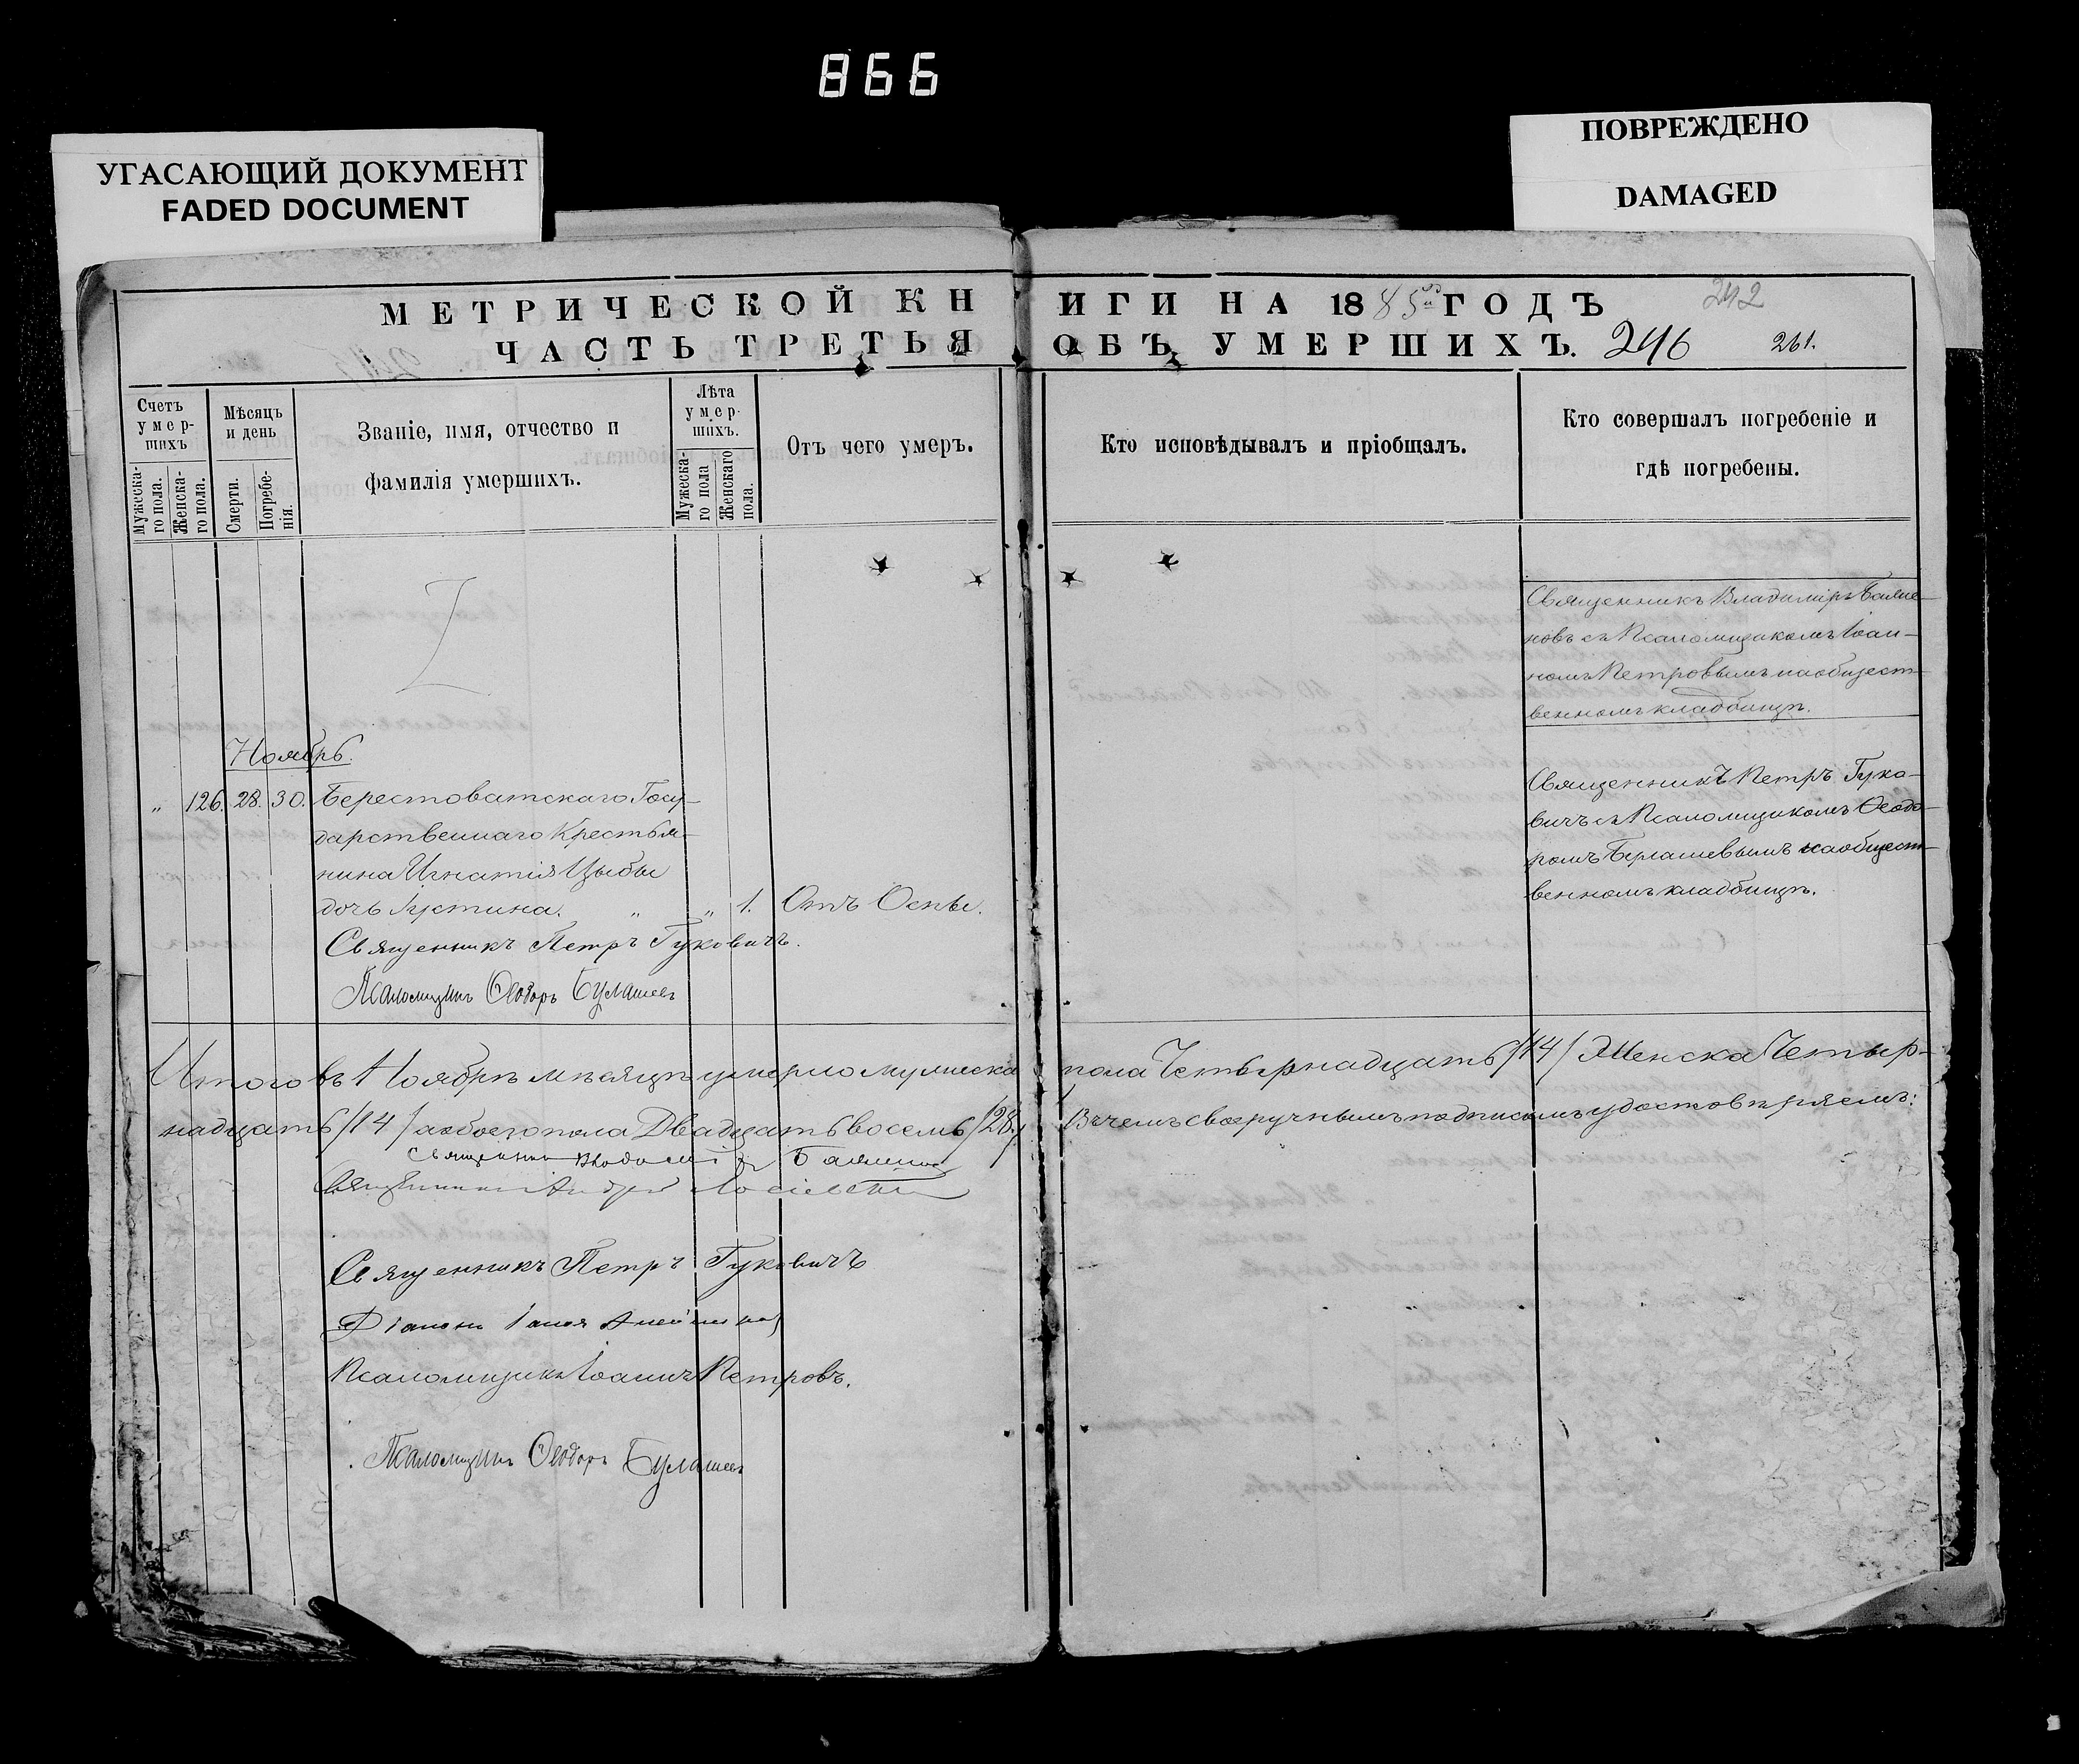 866
УГАСАЮЩИЙ ДОКУМЕНТ
FADED DOCUMENT
ПОВРЕЖДЕНО
DAMAGED
МЕТРИЧЕСКОЙ КНИГИ НА 1885й ГОДЪ 242
ЧАСТЬ ТРЕТЬЯ ОБЪ УМЕРШИХЪ. 246 261.
Счетъ умер-шихъ
Мужеска-го пола.
Женска-го пола.
Мѣсяцъ и день
Смерти.
Погребе-нія.
Званіе, имя, отчество и
фамилія умершихъ.
Лѣта умер-шихъ.
Мужеска-го пола
Женскаго пола.
Отъ чего умеръ.
Кто исповѣдывалъ и пріобщалъ.
Кто совершалъ погребеніе и
гдѣ погребены.
Священникъ Владиміръ Баяно-
новъ съ Псаломщикомъ Іоан-
номъ Петровымъ на общест-
венномъ кладбищѣ.
Ноябрь.
„ 126. 28. 30. Берестоватскаго Госу-
дарственнаго Крестья-
нина Игнатія Цыбы
дочь Іустина. „ „ 1. Отъ Оспы.
Священникъ Петръ Гуко-
вичъ съ Псаломщикомъ Ѳеодо-
ромъ Булашевымъ на общест-
венномъ кладбищѣ.
Священникъ Петръ Гуковичъ.
Псаломщикъ Ѳеодоръ Булашевъ
Итого въ Ноябрѣ мѣсяцѣ умерло мужеска пола Четырнадцать /14/ Женска Четыр-
надцать /14/ а обоего пола Двадцать восемь /28/ Въ чемъ своеручнымъ подписомъ удостовѣряемъ:
Священникъ
Священникъ Андрей
Священникъ Петръ Гуковичъ
Діаконъ
Псаломщикъ Іоаннъ Петровъ.
Псаломщикъ Ѳеодоръ Булашевъ